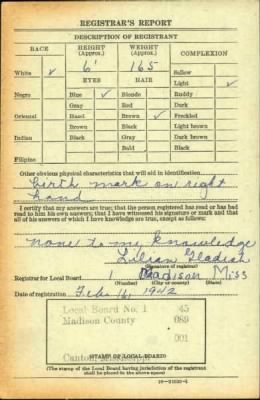 REGISTRAR'S REPORT
DESCRIPTION OF REGISTRANT
RACE HEIGHT (Approx.) WEIGHT (Approx.) COMPLEXION
6' 165
White ✓ Sallow
EYES HAIR Light ✓
Negro Blue ✓ Blonde Ruddy
Gray Red Dark
Oriental Hazel Brown ✓ Freckled
Brown Black Light brown
Indian Black Gray Dark brown
Bald Black
Filipino
Other obvious physical characteristics that will aid in identification
birth mark on right
hand
I certify that my answers are true; that the person registered has read or has had
read to him his own answers; that I have witnessed his signature or mark and that
all of his answers of which I have knowledge are true, except as follows:
None to my knowledge
Lilian
(Signature of registrar)
Registrar for Local Board 1 Madison Miss
(Number) (City or county) (State)
Date of registration Feb 16, 1942
Local Board No. 1 45
Madison County 089
001
Canton, Mississippi
STAMP OF LOCAL BOARD
(The stamp of the Local Board having jurisdiction of the registrant
shall be placed in the above space.)